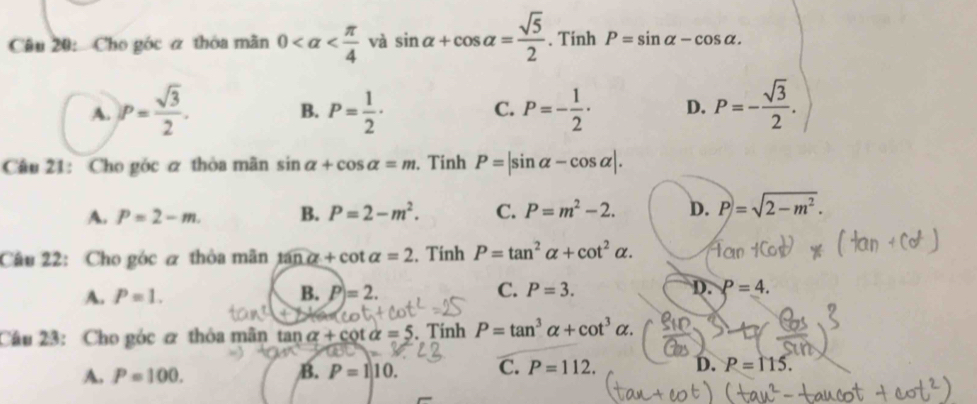 Câu 20: Cho góc α thỏa mãn 0 < α < π/4 và sin α + cos α = √5/2. Tính P = sin α − cos α.
A. P = √3/2. B. P = 1/2. C. P = −1/2. D. P = −√3/2.
Câu 21: Cho góc α thỏa mãn sin α + cos α = m. Tính P = |sin α − cos α|.
A. P = 2 − m. B. P = 2 − m². C. P = m² − 2. D. P = √(2 − m²).
(tan + cot) (tan + cot)
Câu 22: Cho góc α thỏa mãn tan α + cot α = 2. Tính P = tan² α + cot² α.
A. P = 1. B. P = 2. C. P = 3. D. P = 4.
tan² + 2tancot + cot² = 25
Câu 23: Cho góc α thỏa mãn tan α + cot α = 5. Tính P = tan³ α + cot³ α. (sin/cos)³ + (cos/sin)³
A. P = 100. B. P = 110. C. P = 112. D. P = 115.
(tan + cot) (tan² − tancot + cot²)